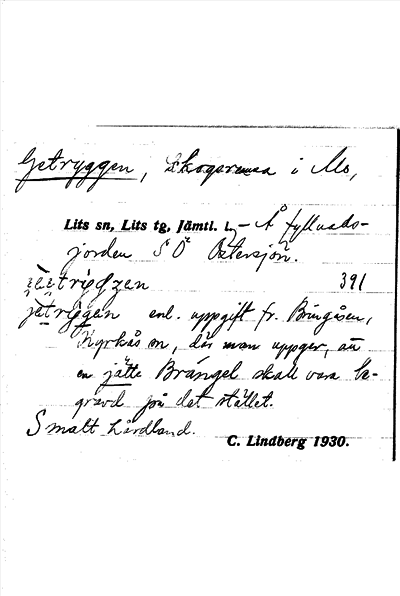 Getryggen, Skogsremsa i Mo,
Lits sn, Lits tg, Jämtl. l. – Å fyllnads-
jorden S Ö Östersjön.
391
jetriggen enl. uppgift fr. Bringåsen,
Kyrkås sn, där man uppger, att
en jätte Brängel skall vara be-
gravd på det stället.
Smalt hårdland.
C. Lindberg 1930.